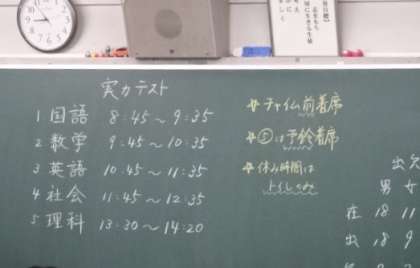 実力テスト
1 国語 8:45～9:35
2 数学 9:45～10:35
3 英語 10:45～11:35
4 社会 11:45～12:35
5 理科 13:30～14:20
チャイム前着席
⑤は予鈴着席
休み時間は
トイレのみ
出欠
男 女
在 18 11
出 18 9